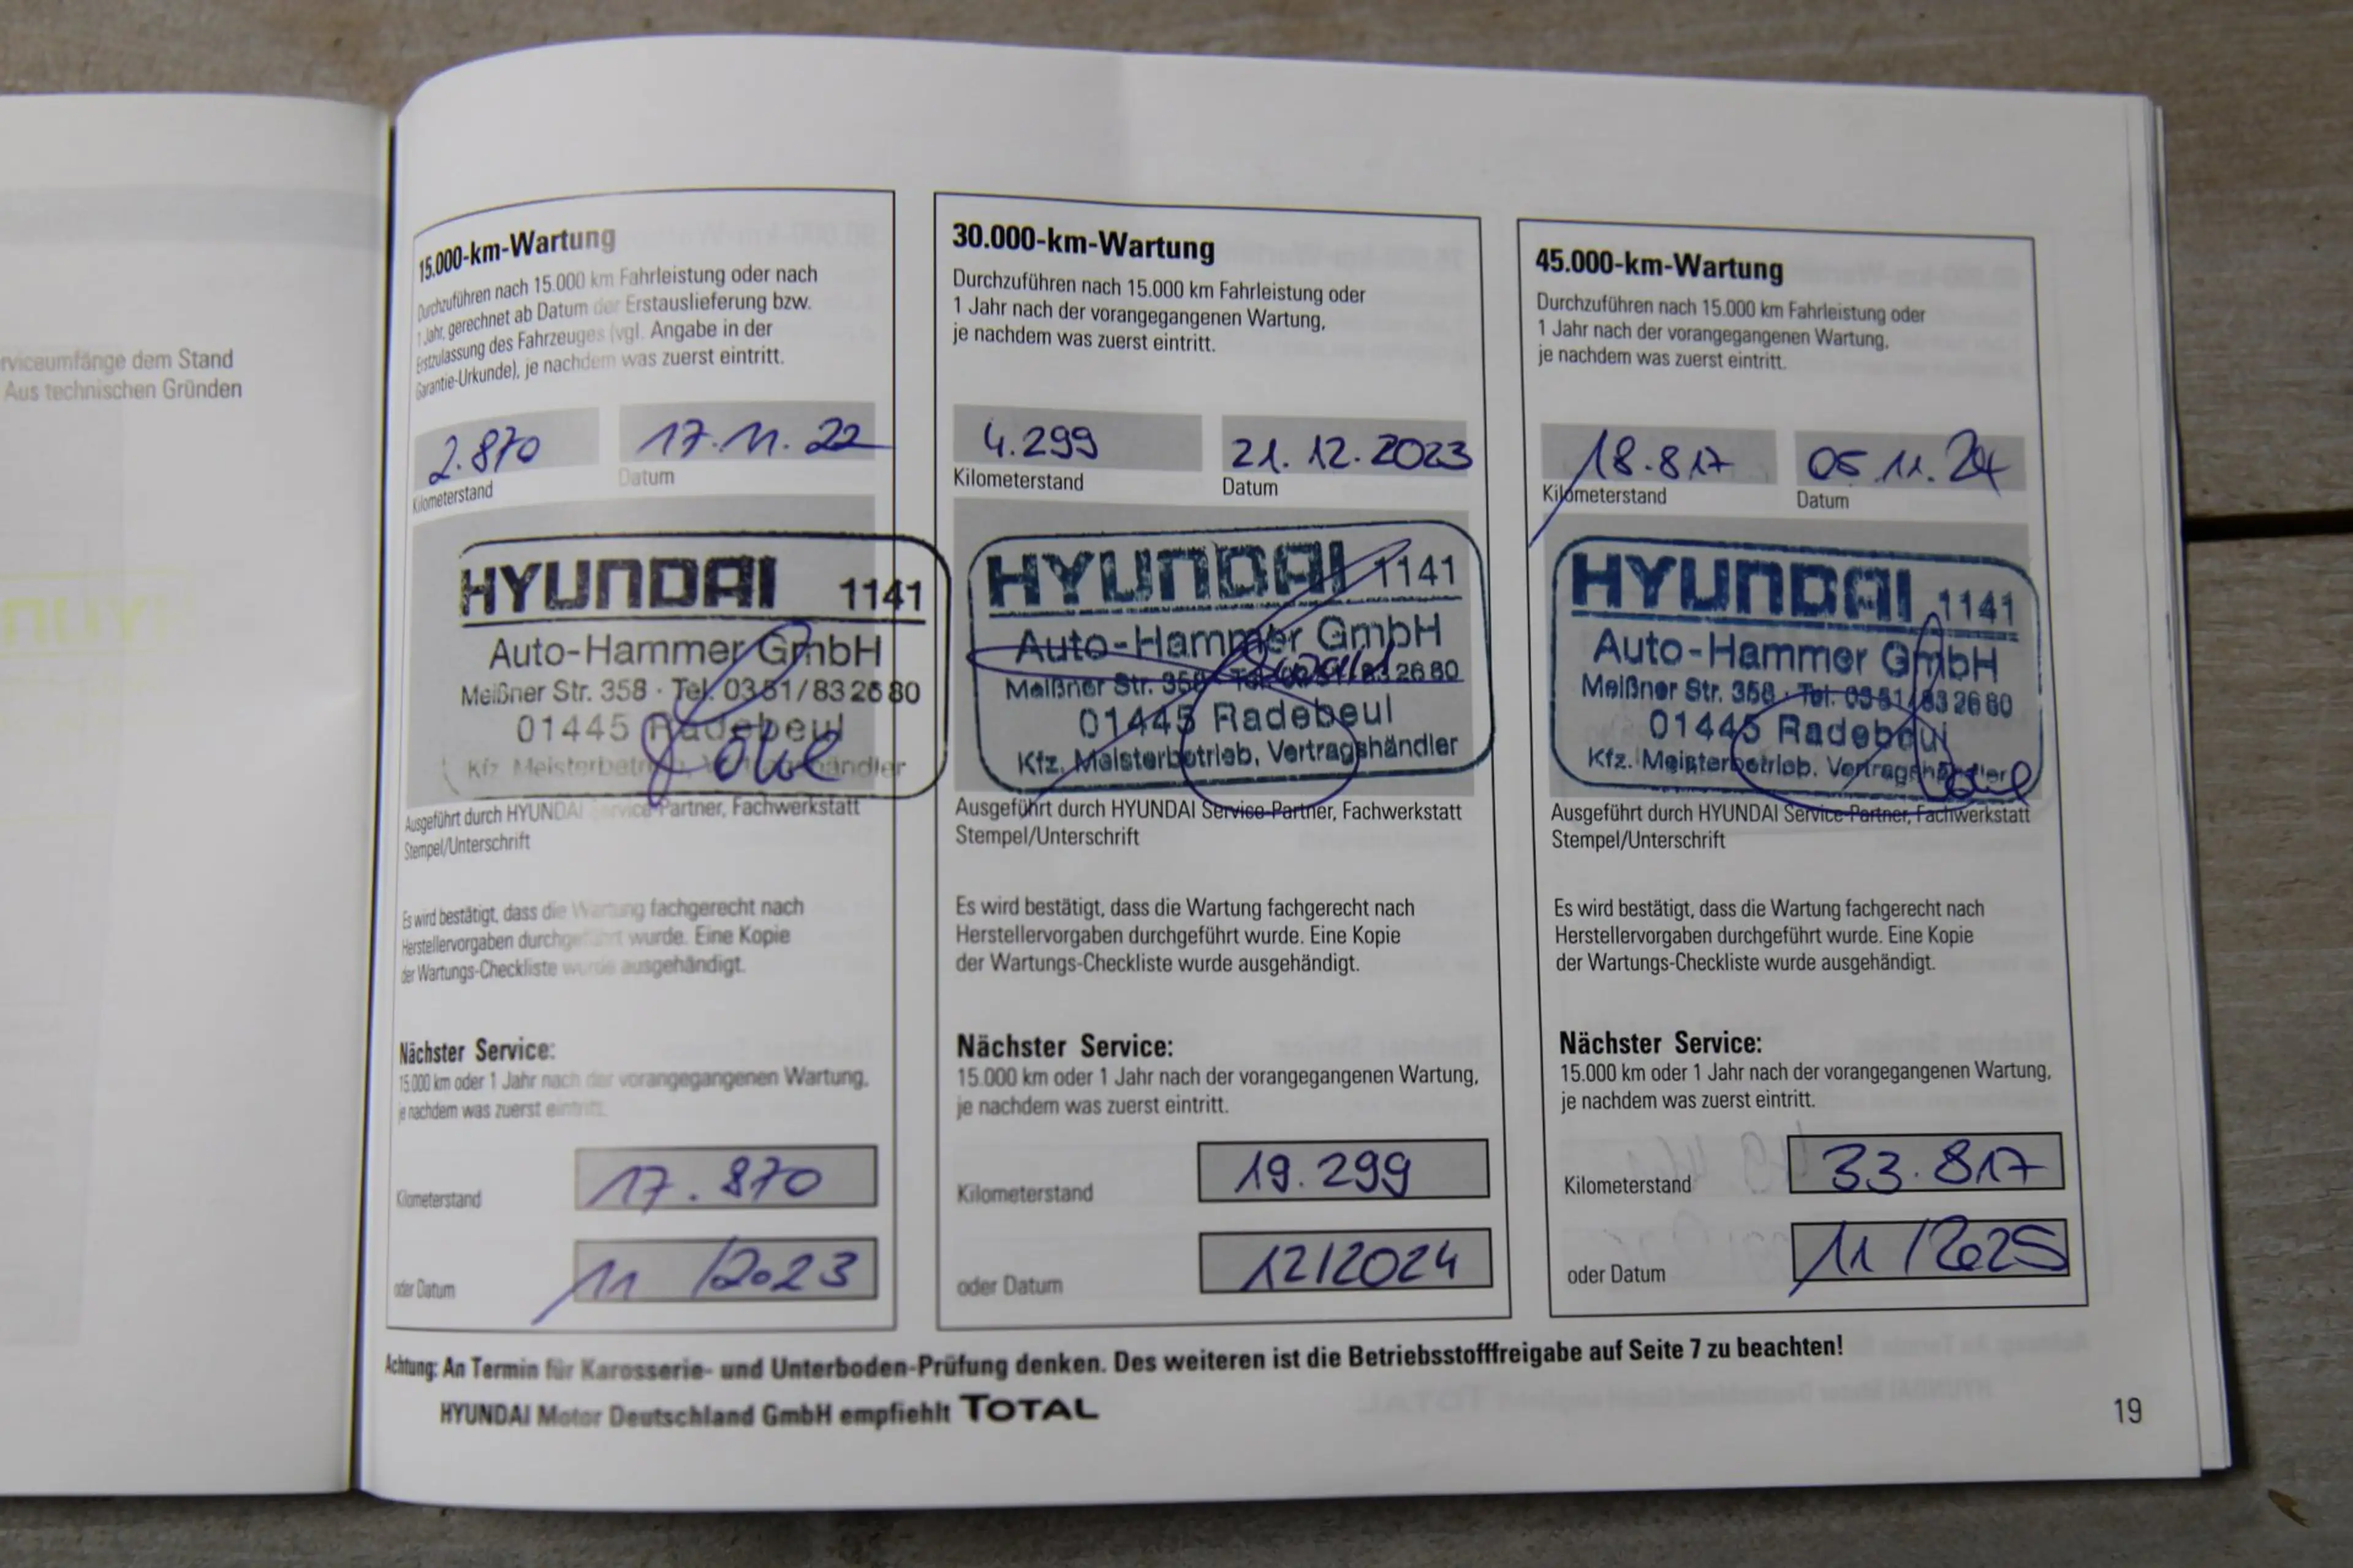 rviceumfänge dem Stand
Aus technischen Gründen
15.000-km-Wartung
Durchzuführen nach 15.000 km Fahrleistung oder nach
1 Jahr, gerechnet ab Datum der Erstauslieferung bzw.
Erstzulassung des Fahrzeuges (vgl. Angabe in der
Garantie-Urkunde), je nachdem was zuerst eintritt.
2.870 17.11.22
Kilometerstand Datum
HYUNDAI 1141
Auto-Hammer GmbH
Meißner Str. 358 · Tel. 0351/83 26 80
01445 Radebeul
Kfz. Meisterbetrieb, Vertragshändler
Ausgeführt durch HYUNDAI Service-Partner, Fachwerkstatt
Stempel/Unterschrift
Es wird bestätigt, dass die Wartung fachgerecht nach
Herstellervorgaben durchgeführt wurde. Eine Kopie
der Wartungs-Checkliste wurde ausgehändigt.
Nächster Service:
15.000 km oder 1 Jahr nach der vorangegangenen Wartung,
je nachdem was zuerst eintritt.
Kilometerstand 17.870
oder Datum 11/2023
30.000-km-Wartung
Durchzuführen nach 15.000 km Fahrleistung oder
1 Jahr nach der vorangegangenen Wartung,
je nachdem was zuerst eintritt.
4.299 21.12.2023
Kilometerstand Datum
HYUNDAI 1141
Auto-Hammer GmbH
Meißner Str. 358 · Tel. 0351/83 26 80
01445 Radebeul
Kfz. Meisterbetrieb, Vertragshändler
Ausgeführt durch HYUNDAI Service-Partner, Fachwerkstatt
Stempel/Unterschrift
Es wird bestätigt, dass die Wartung fachgerecht nach
Herstellervorgaben durchgeführt wurde. Eine Kopie
der Wartungs-Checkliste wurde ausgehändigt.
Nächster Service:
15.000 km oder 1 Jahr nach der vorangegangenen Wartung,
je nachdem was zuerst eintritt.
Kilometerstand 19.299
oder Datum 12/2024
45.000-km-Wartung
Durchzuführen nach 15.000 km Fahrleistung oder
1 Jahr nach der vorangegangenen Wartung,
je nachdem was zuerst eintritt.
18.817 05.11.24
Kilometerstand Datum
HYUNDAI 1141
Auto-Hammer GmbH
Meißner Str. 358 · Tel. 0351/83 26 80
01445 Radebeul
Kfz. Meisterbetrieb, Vertragshändler
Ausgeführt durch HYUNDAI Service-Partner, Fachwerkstatt
Stempel/Unterschrift
Es wird bestätigt, dass die Wartung fachgerecht nach
Herstellervorgaben durchgeführt wurde. Eine Kopie
der Wartungs-Checkliste wurde ausgehändigt.
Nächster Service:
15.000 km oder 1 Jahr nach der vorangegangenen Wartung,
je nachdem was zuerst eintritt.
Kilometerstand 33.817
oder Datum 11/2025
Achtung: An Termin für Karosserie- und Unterboden-Prüfung denken. Des weiteren ist die Betriebsstofffreigabe auf Seite 7 zu beachten!
HYUNDAI Motor Deutschland GmbH empfiehlt TOTAL
19